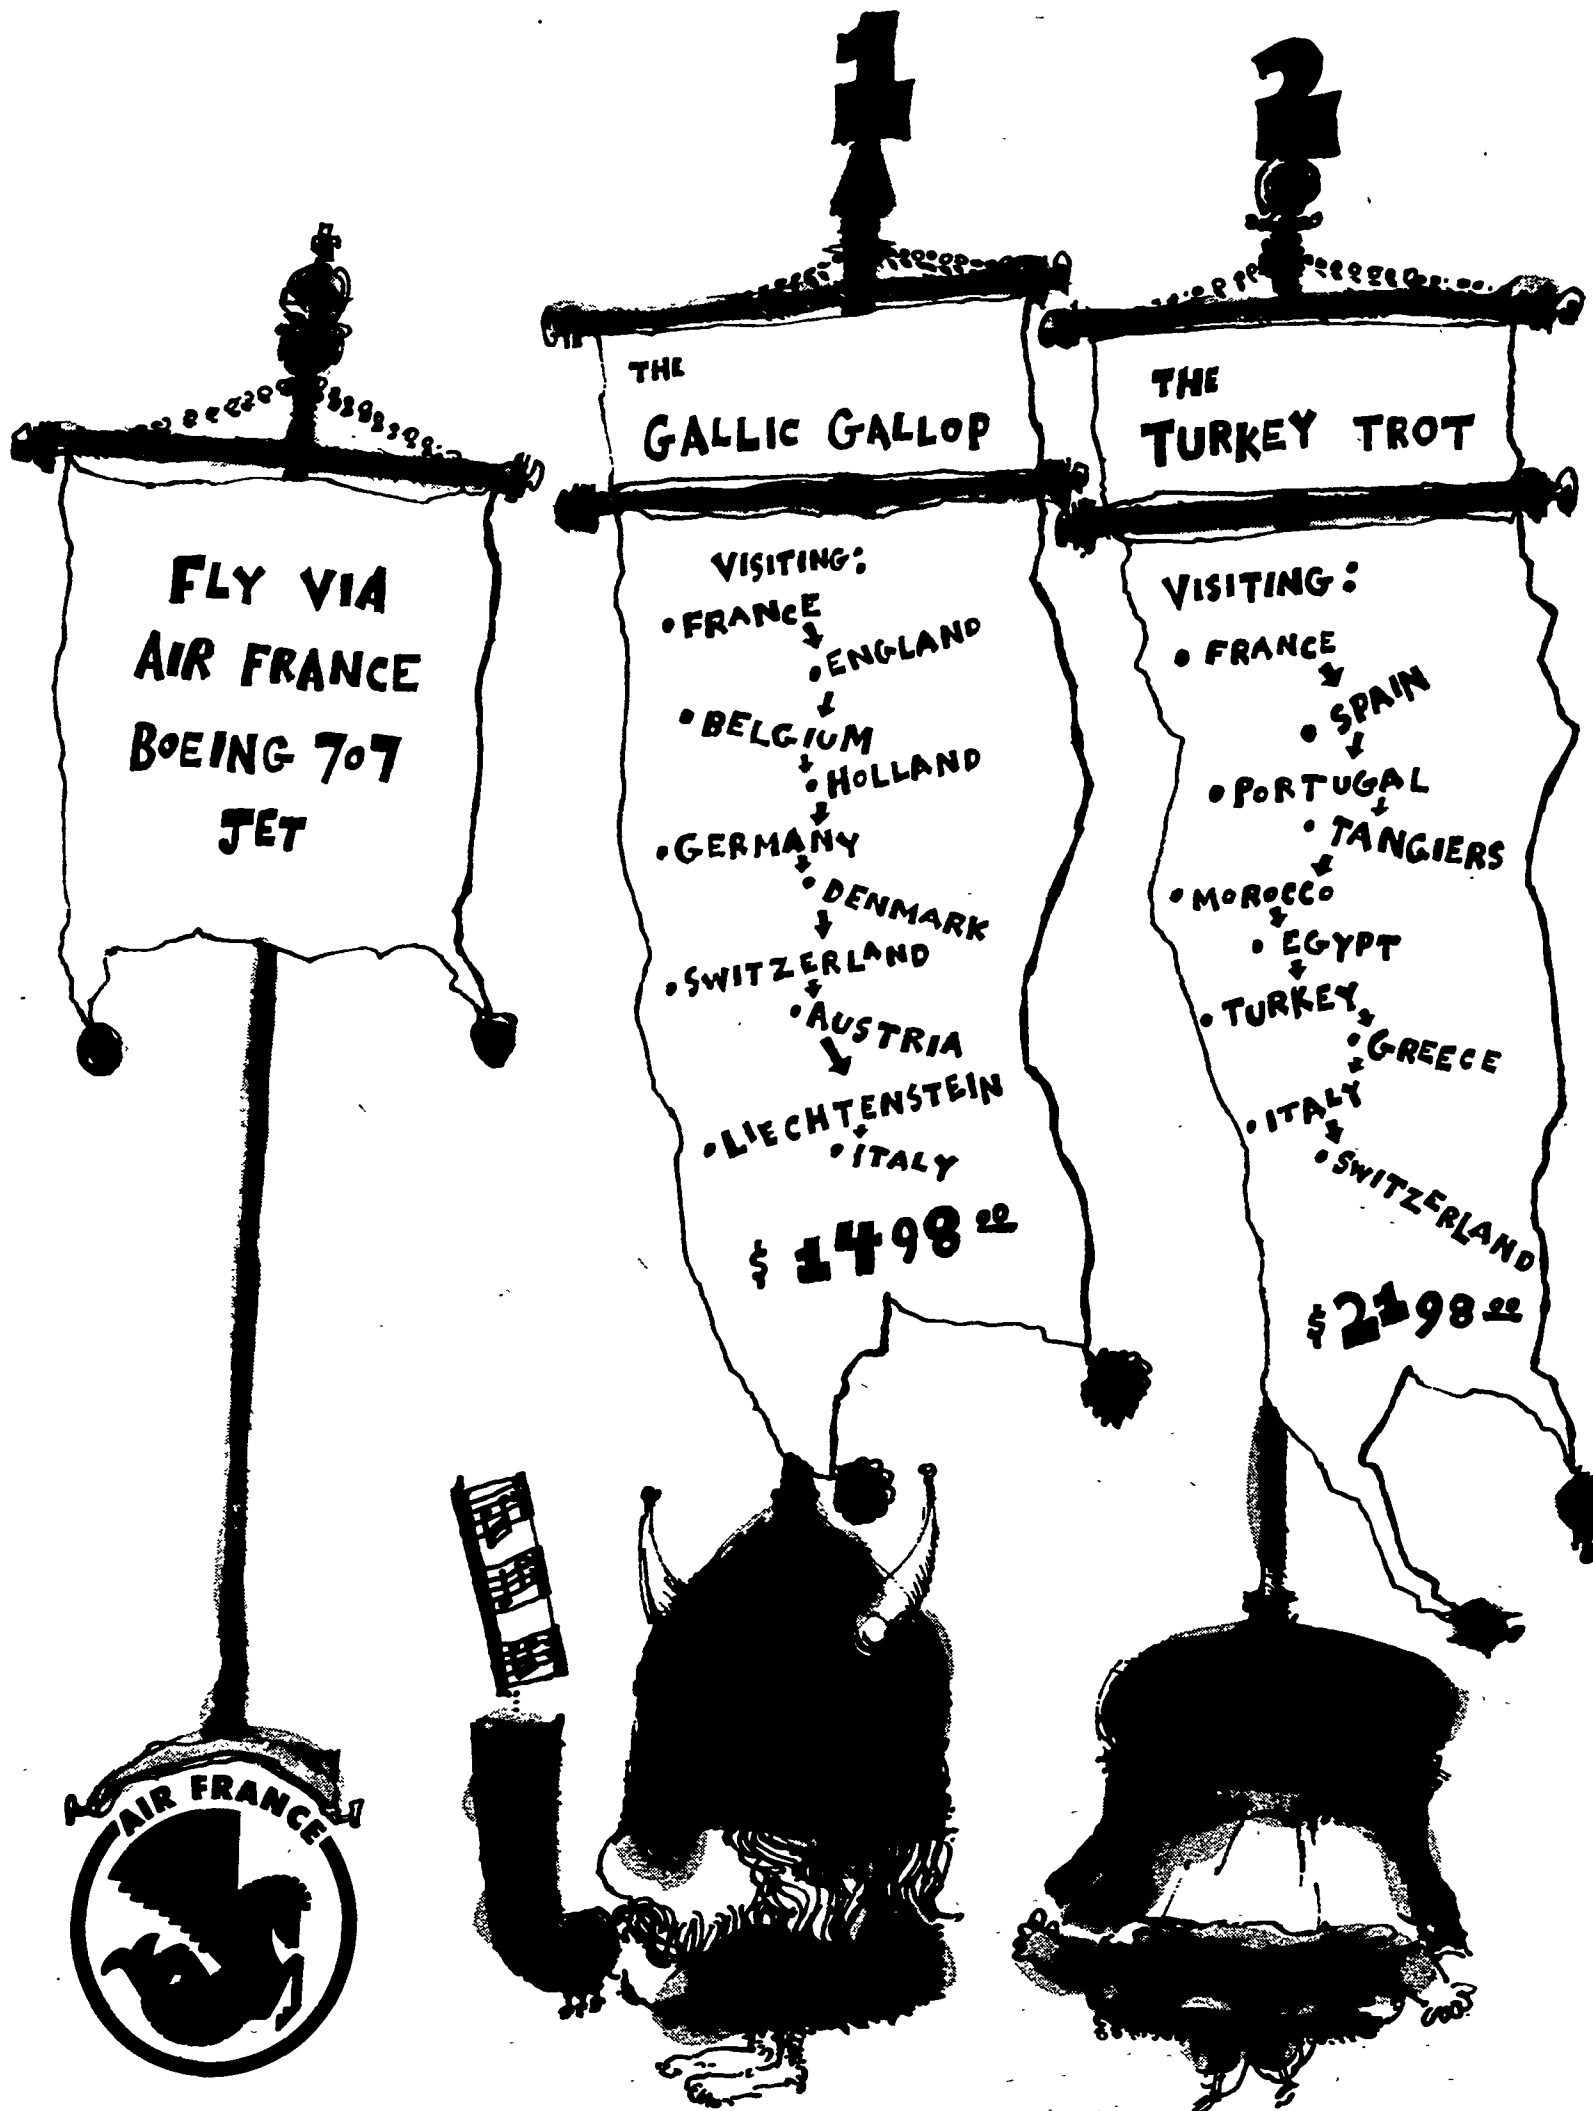 FLY VIA
AIR FRANCE
BOEING 707
JET
AIR FRANCE
1
THE
GALLIC GALLOP
VISITING:
• FRANCE
• ENGLAND
• BELGIUM
• HOLLAND
• GERMANY
• DENMARK
• SWITZERLAND
• AUSTRIA
• LIECHTENSTEIN
• ITALY
$ 1498.00
2
THE
TURKEY TROT
VISITING:
• FRANCE
• SPAIN
• PORTUGAL
• TANGIERS
• MOROCCO
• EGYPT
• TURKEY
• GREECE
• ITALY
• SWITZERLAND
$ 2198.00